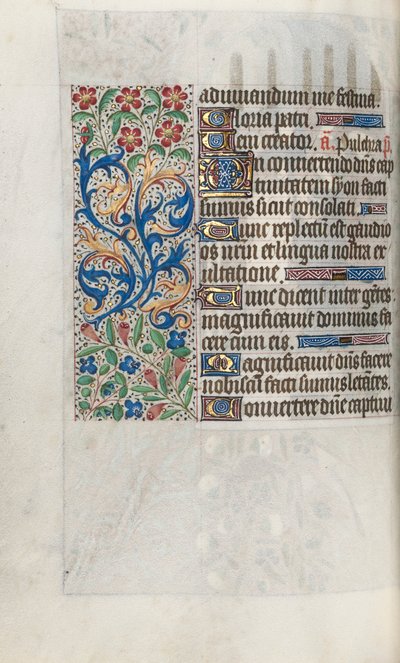 adiuuandum me festina.
Gloria patri.
Veni creator. a͞. Pulchra p̄.
In conuertendo dn̄s cap
tiuitatem syon facti
sumus sicut consolati.
Tunc repletū est gaudio
os nr̄m et lingua nostra ex
ultatione.
Tunc dicent inter gētes.
magnificauit dominus fa
cere cum eis.
Magnificauit dn̄s facere
nobiscū facti sumus letātes.
Conuertere dn̄e captiui